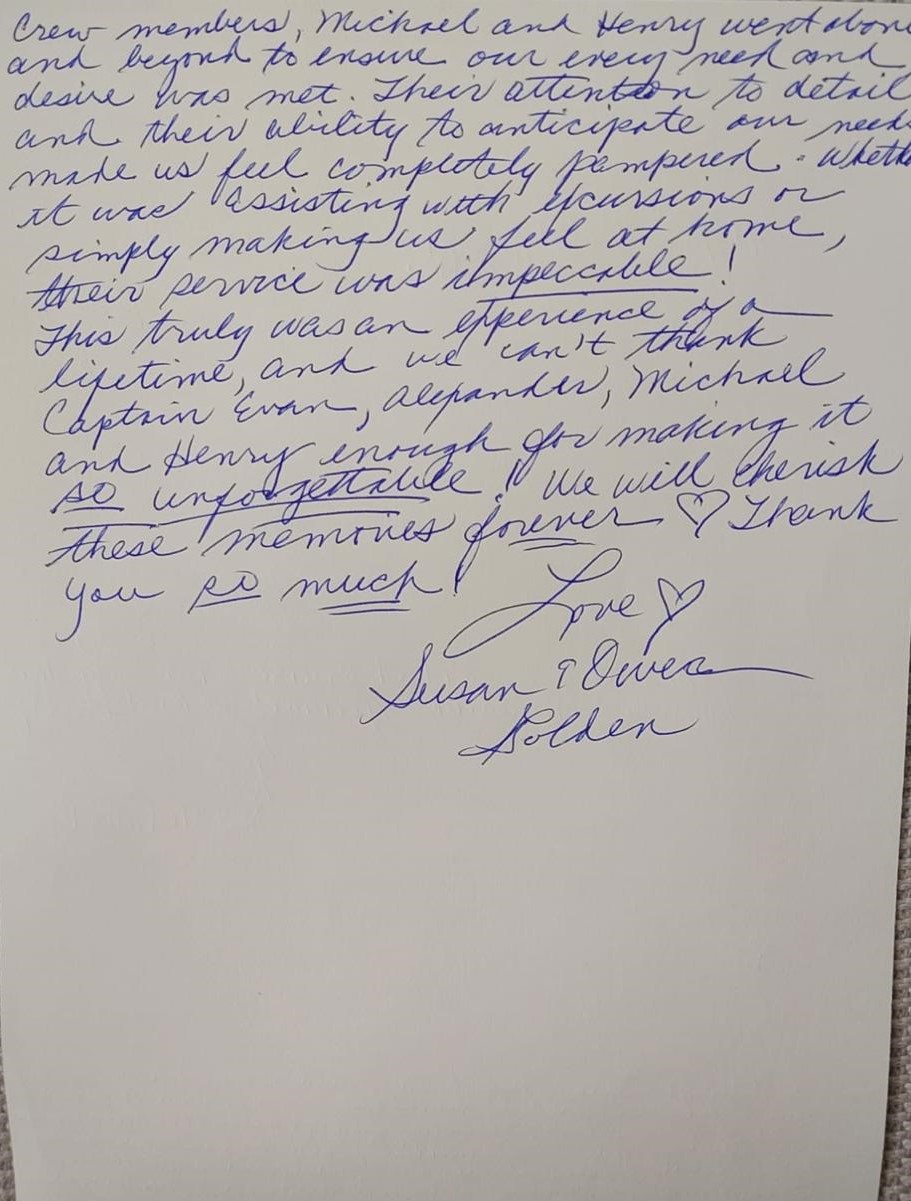 Crew members, Michael and Henry went above
and beyond to ensure our every need and
desire was met. Their attention to detail
and their ability to anticipate our need
made us feel completely pampered. Wheth
it was assisting with excursions or
simply making us feel at home,
their service was impeccable!
This truly was an experience of a
lifetime, and we can't thank
Captain Evan, Alexander, Michael
and Henry enough for making it
so unforgettable! We will cherish
these memories forever ♡ Thank
you so much!
Love ♡
Susan & Owen
Golden